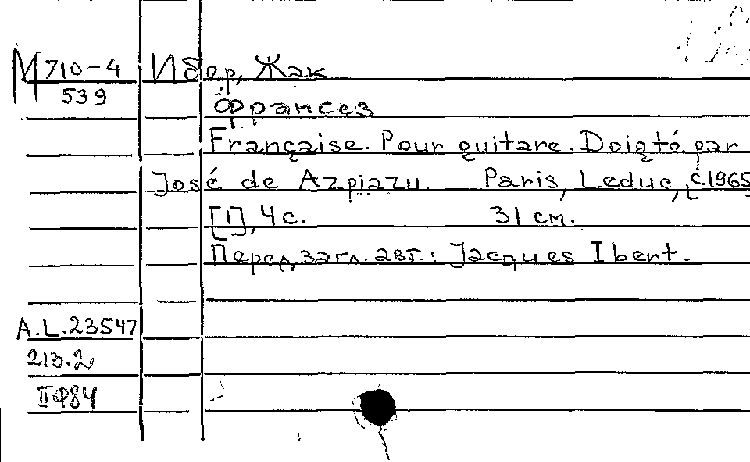 М 710-4 Ибер, Жак
539
Франсез
Française. Pour guitare. Doigté par
José de Azpiazu. Paris, Leduc, c.1965
[1], 4 с. 31 см.
Перед загл. авт.: Jacques Ibert.
A.L.23547
213.2
IIФ84